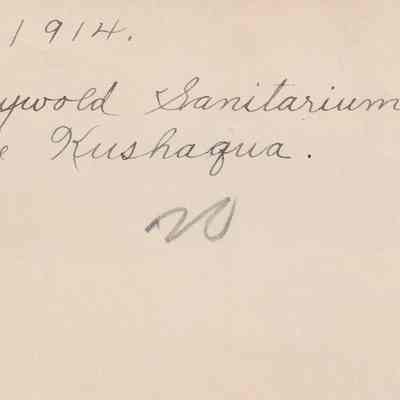 1914.
ywold Sanitarium
e Kushaqua.